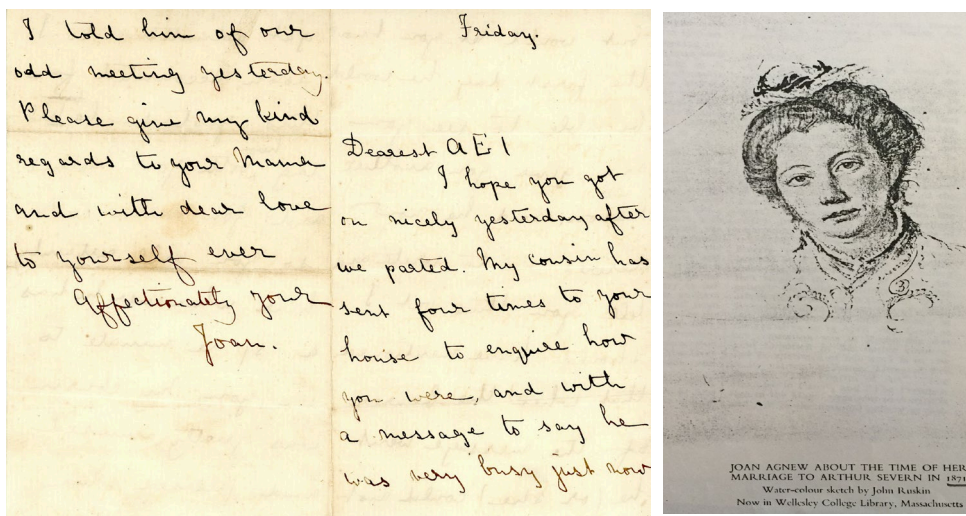 I told him of our
odd meeting yesterday.
Please give my kind
regards to your Mama
and with dear love
to yourself ever
Affectionately yours
Joan.
Friday.
Dearest
I hope you got
on nicely yesterday after
we parted. My cousin has
sent four times to your
house to enquire how
you were, and with
a message to say he
was very busy just now
3
JOAN AGNEW ABOUT THE TIME OF HER
MARRIAGE TO ARTHUR SEVERN IN 1871
Water-colour sketch by John Ruskin
Now in Wellesley College Library, Massachusetts